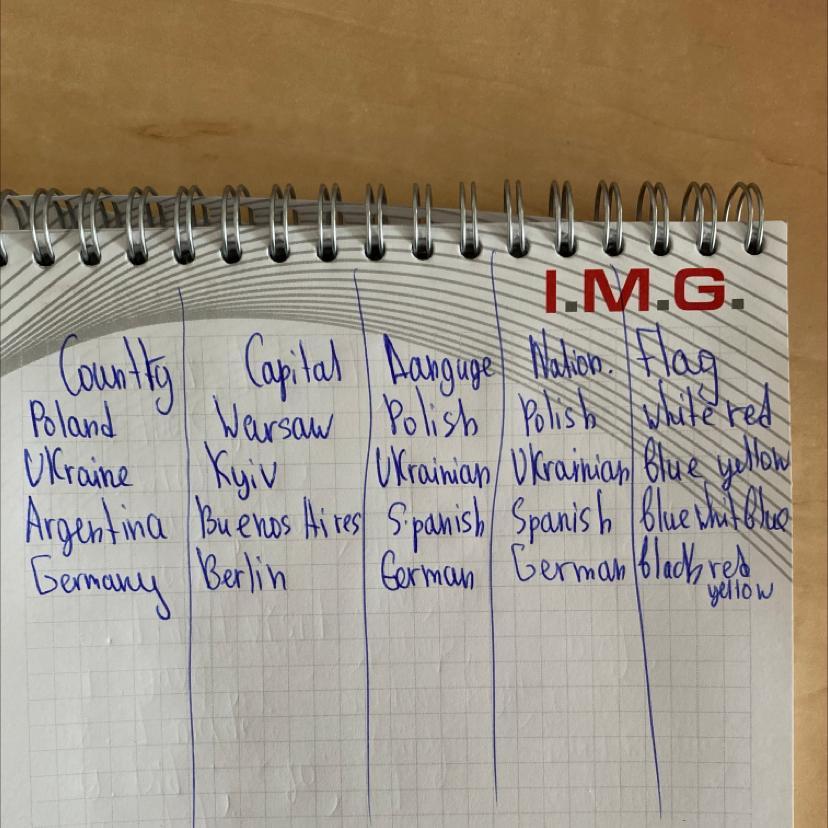 I.M.G.
Country Capital Languge Nation. Flag
Poland Warsaw Polish Polish white red
Ukraine Kyiv Ukrainian Ukrainian blue yellow
Argentina Buenos Aires Spanish Spanish blue whit blue
Germany Berlin German German black red
yellow